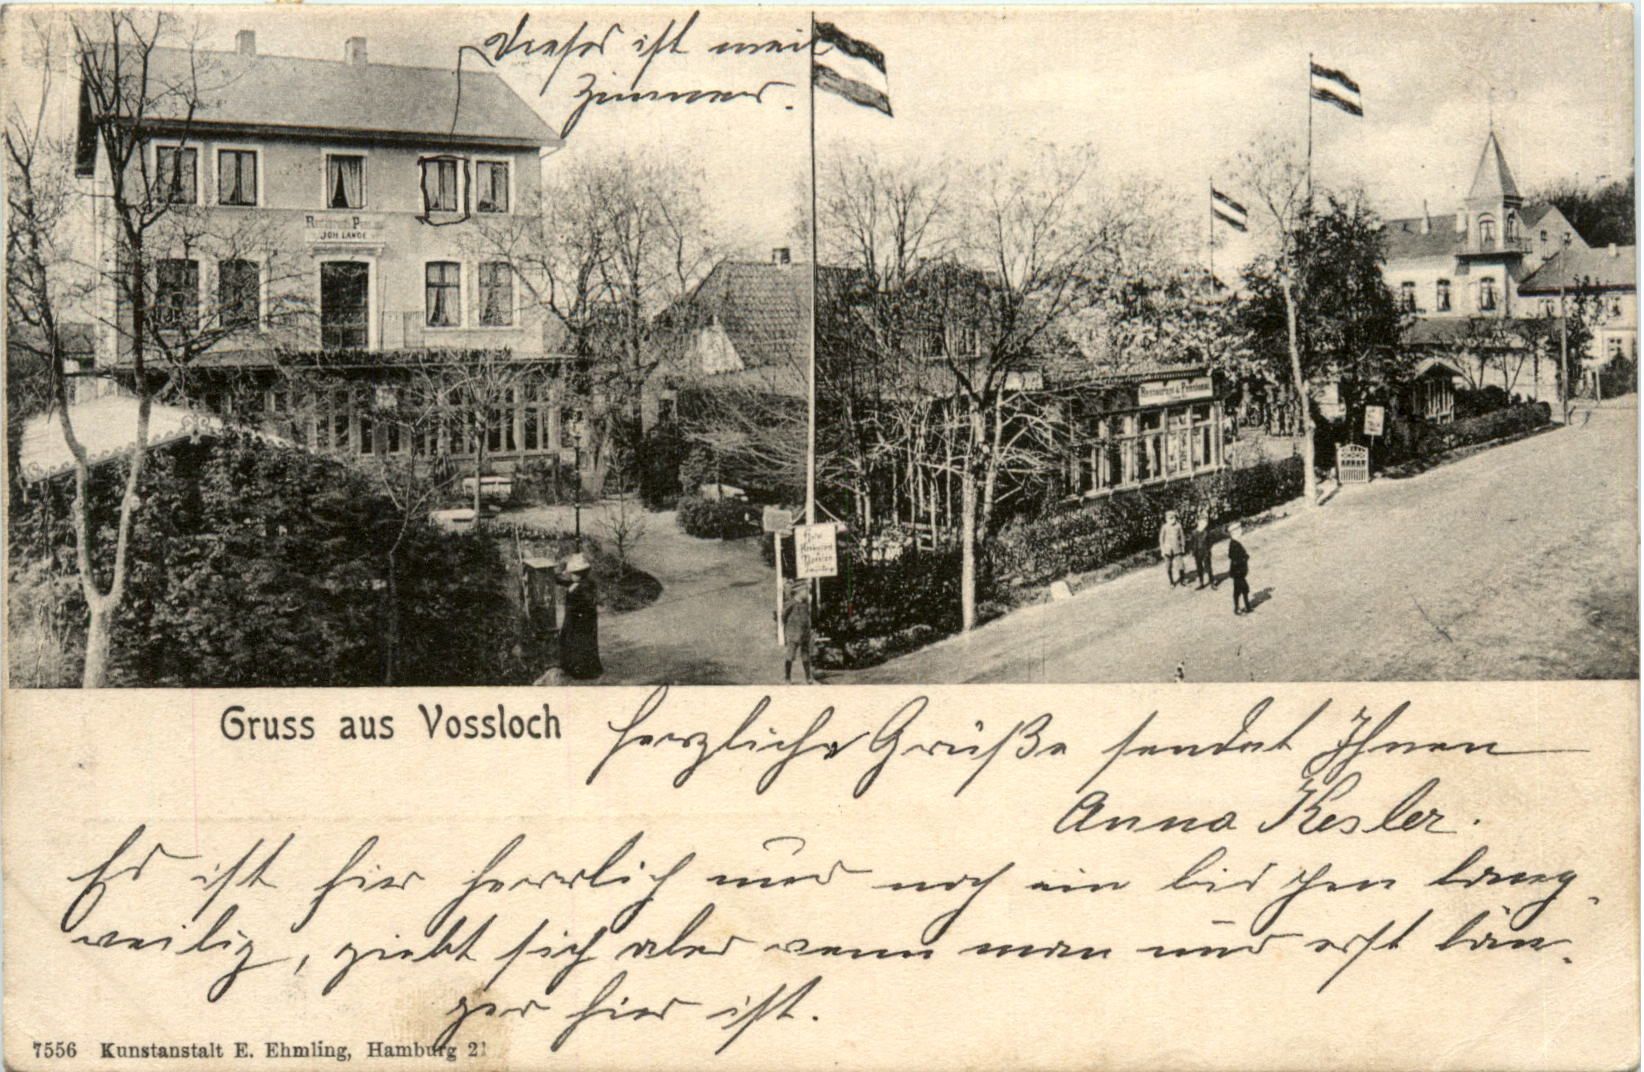 Dieses ist mein
Zimmer.
JOH. LANGE
Restaurant & Pensionat
Hotel
Gruss aus Vossloch
Herzliche Grüße sendet Ihnen
Anna Kesler.
Es ist hier herrlich nur noch ein bischen lang-
weilig, giebt sich aber wenn man nur erst län-
ger hier ist.
7556 Kunstanstalt E. Ehmling, Hamburg 21